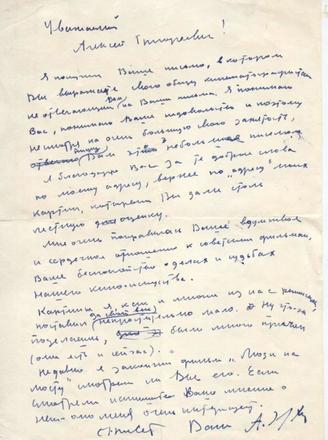 Уважаемый
Алексей Григорьевич!
Я получил Ваше письмо, в котором
Вы выражаете свою обиду кинематографистам
не отвечающим Вам на Ваши письма. Я понимаю
Вас, понимаю Ваше недовольство и поэтому
несмотря на очень большую свою занятость,
пишу Вам это небольшое письмо.
Я благодарю Вас за те добрые слова
по моему адресу, вернее по "адресу" моих
картин, которым Вы дали столь
лестную оценку.
Мне очень понравилось Ваше вдумчивое
и сердечное отношение к советским фильмам,
Ваше беспокойство о делах и судьбах
нашего киноискусства.
Картины я, как и многие из нас режиссеров,
поставил за свой век непростительно мало. Ну что ж
поделаешь, были много причин
(они есть и сейчас).
Недавно я закончил фильм "Люди на
мосту" смотрели ли Вы его. Если
смотрели напишите Ваше мнение -
оно меня очень интересует.
Привет Ваш А.